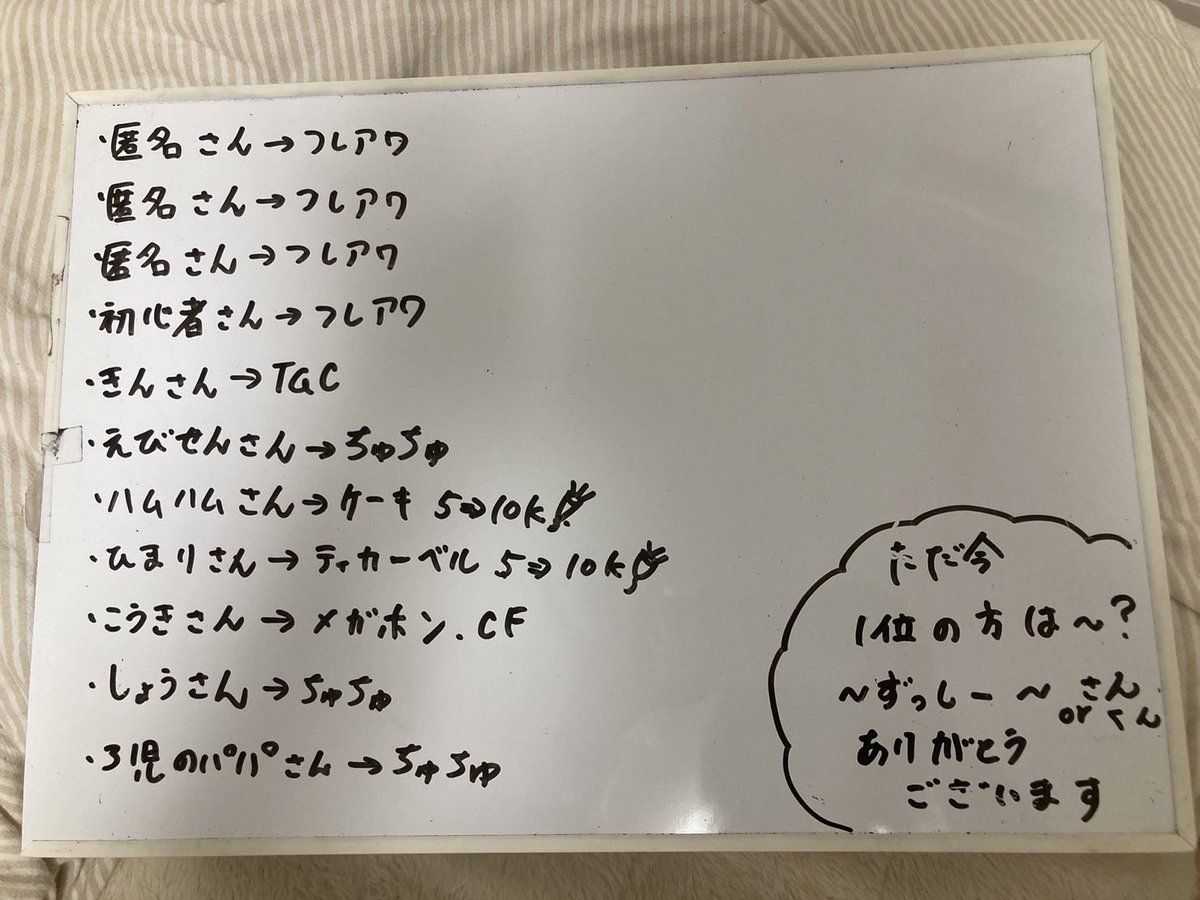 ・匿名さん→フレアワ
・匿名さん→フレアワ
・匿名さん→フレアワ
・初心者さん→フレアワ
・きんさん→TGC
・えびせんさん→ちゅちゅ
・ハムハムさん→ケーキ 5⇒10K
・ひまりさん→ティカーベル 5⇒10K
・こうきさん→メガホン.CF
・しょうさん→ちゅちゅ
・3児のパパさん→ちゅちゅ
ただ今
1位の方は～?
～ずっしー～さん
or くん
ありがとう
ございます